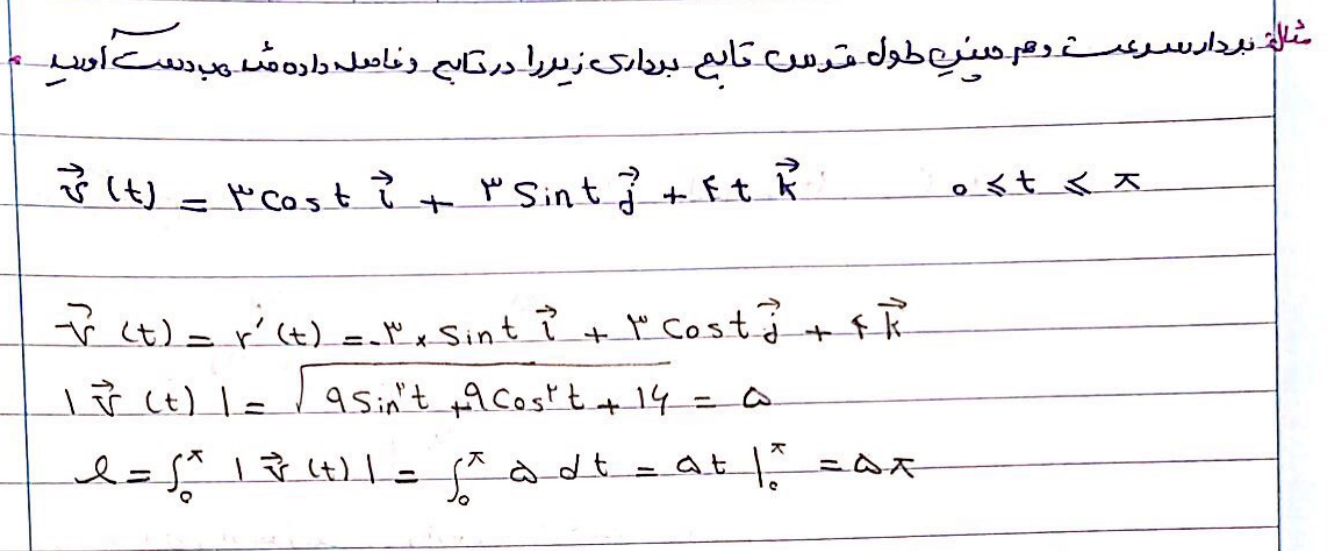 مثال: بردار سرعت و هم چنین طول قوس تابع برداری زیر را در تابع و فاصله داده شده بدست آورید.
v⃗(t) = ۳cost i⃗ + ۳Sint j⃗ + ۴t k⃗    ۰ ≤ t ≤ π
v⃗(t) = r'(t) = -۳ × Sint i⃗ + ۳Cost j⃗ + ۴k⃗
|v⃗(t)| = √(۹Sin²t + ۹Cos²t + ۱۶) = ۵
l = ∫₀^π |v⃗(t)| = ∫₀^π ۵ dt = ۵t |₀^π = ۵π